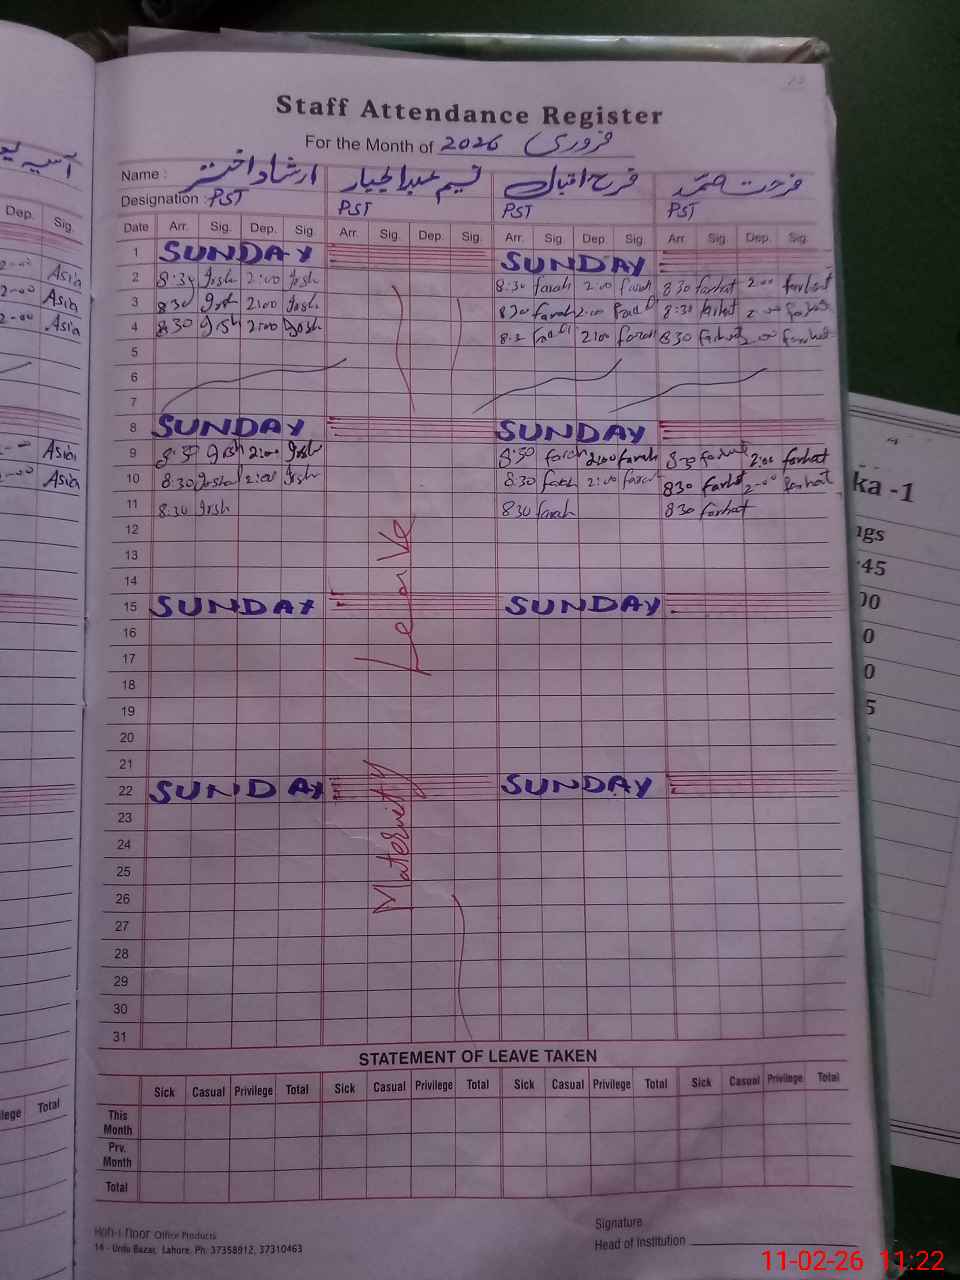 Staff Attendance Register
For the Month of 2026 فروری
Name : ارشاد اختر نسیم عبدالجبار فرح اقبال فرحت صمد
Designation : PST PST PST PST
Date Arr. Sig. Dep. Sig. Arr. Sig. Dep. Sig. Arr. Sig. Dep. Sig. Arr. Sig. Dep. Sig.
1 SUNDAY SUNDAY
2 8:30 Irsh 2:00 Irsh 8:30 farah 2:00 farah 8 30 farhat 2-00 farhat
3 8 30 Irsh 2:00 Irsh 8 30 farah 2:00 farah 8:30 farhat 2-00 farhat
4 8:30 Irsh 2:00 Irsh 8:3 farah 2:00 farah 8 30 farhat 2-00 farhat
5
6
7
8 SUNDAY SUNDAY
9 8:30 Irsh 2:00 Irsh 8:30 farah 2:00 farah 8 30 farhat 2:00 farhat
10 8:30 Irsh 2:00 Irsh 8:30 farah 2:00 farah 8 30 farhat 2-00 farhat
11 8:30 Irsh 8 30 farah 8 30 farhat
12
13
14
15 SUNDAY SUNDAY
16
17
18
19
20
21
22 SUNDAY SUNDAY
23
24
25
26
27
28
29
30
31
Maternity Leave
STATEMENT OF LEAVE TAKEN
Sick Casual Privilege Total Sick Casual Privilege Total Sick Casual Privilege Total Sick Casual Privilege Total
This Month
Prv. Month
Total
Koh-i-Noor Office Products
14 - Urdu Bazar, Lahore, Ph: 37358912, 37310463
Signature
Head of Institution
آسیہ
Dep. Sig.
2-00 Asia
2-00 Asia
2-00 Asia
Asia
-00 Asia
ilege Total
ka -1
ngs
45
00
0
0
5
11-02-26 11:22